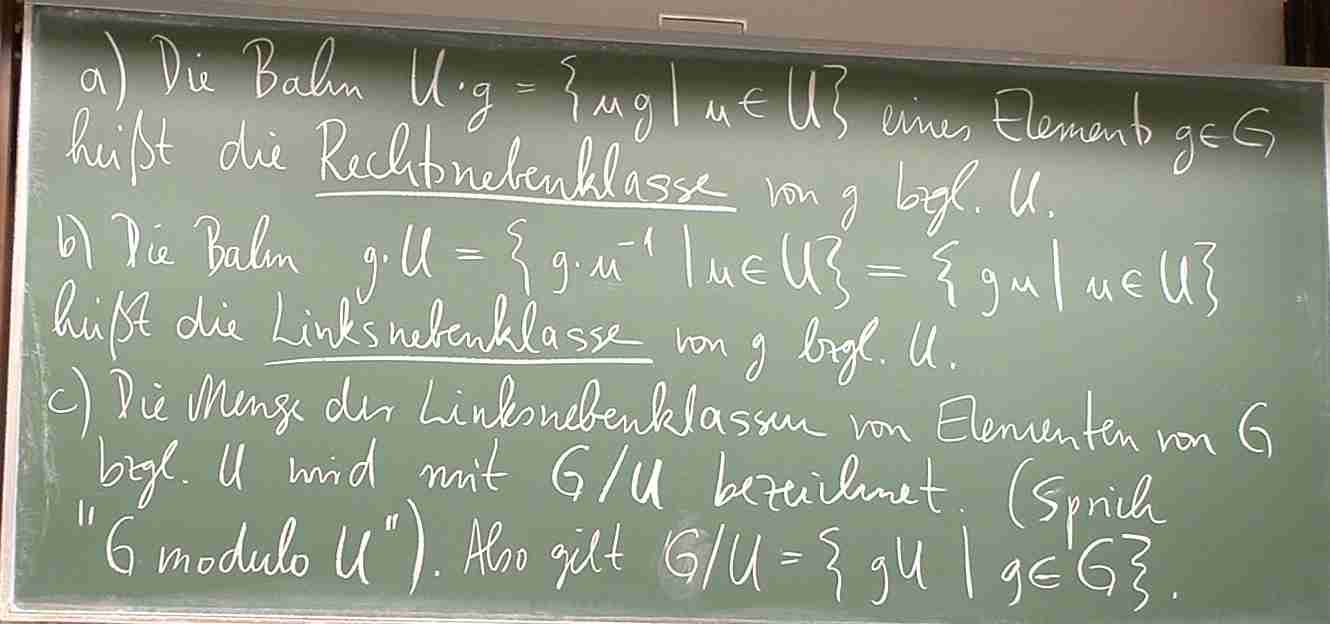 a) Die Bahn U·g = {ug | u ∈ U} eines Elements g ∈ G
heißt die Rechtsnebenklasse von g bzgl. U.
b) Die Bahn g·U = {g·u⁻¹ | u ∈ U} = {gu | u ∈ U}
heißt die Linksnebenklasse von g bzgl. U.
c) Die Menge der Linksnebenklassen von Elementen von G
bzgl. U wird mit G/U bezeichnet. (Sprich
"G modulo U"). Also gilt G/U = {gU | g ∈ G}.